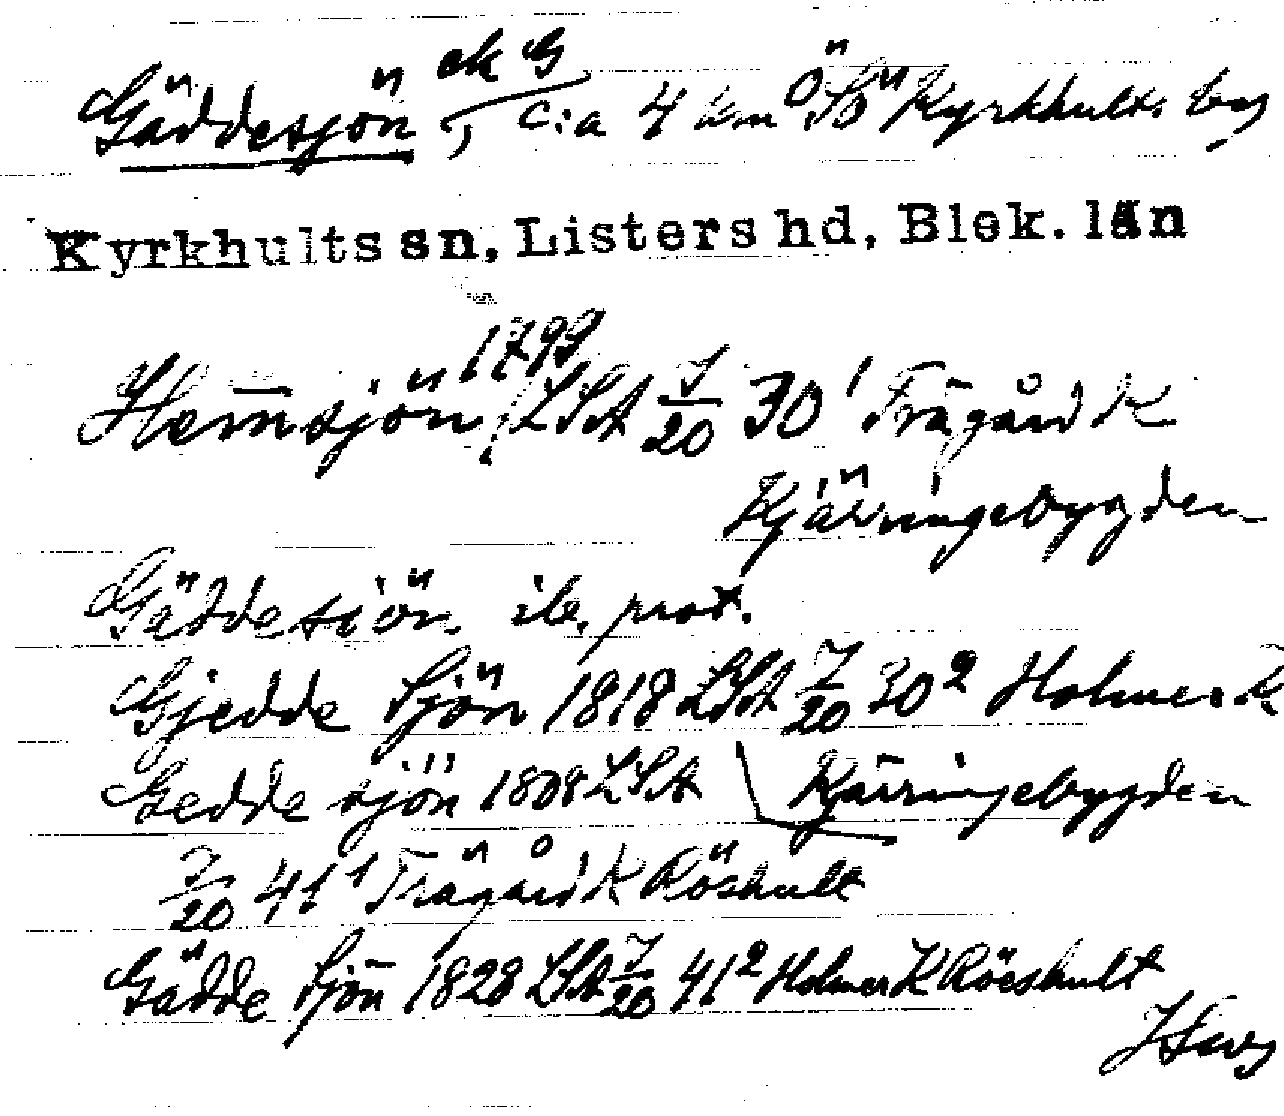 Gäddesjön, ek G c:a 4 km Ö So Kyrkhults by
Kyrkhults sn, Listers hd, Blek. län
Hemsjön 1799 LSA 7/20 30¹ Trägård K
Kjärringebygden
Gäddesiön. ib. prot.
Gjedde Sjön 1818 LSA 7/20 30² Holmer K
Gedde sjön 1808 LSA Kjärringebygden
7/20 41¹ Trägård K Röshult
Gädde Sjön 1828 LSA 7/20 41² Holmer K Röeshult